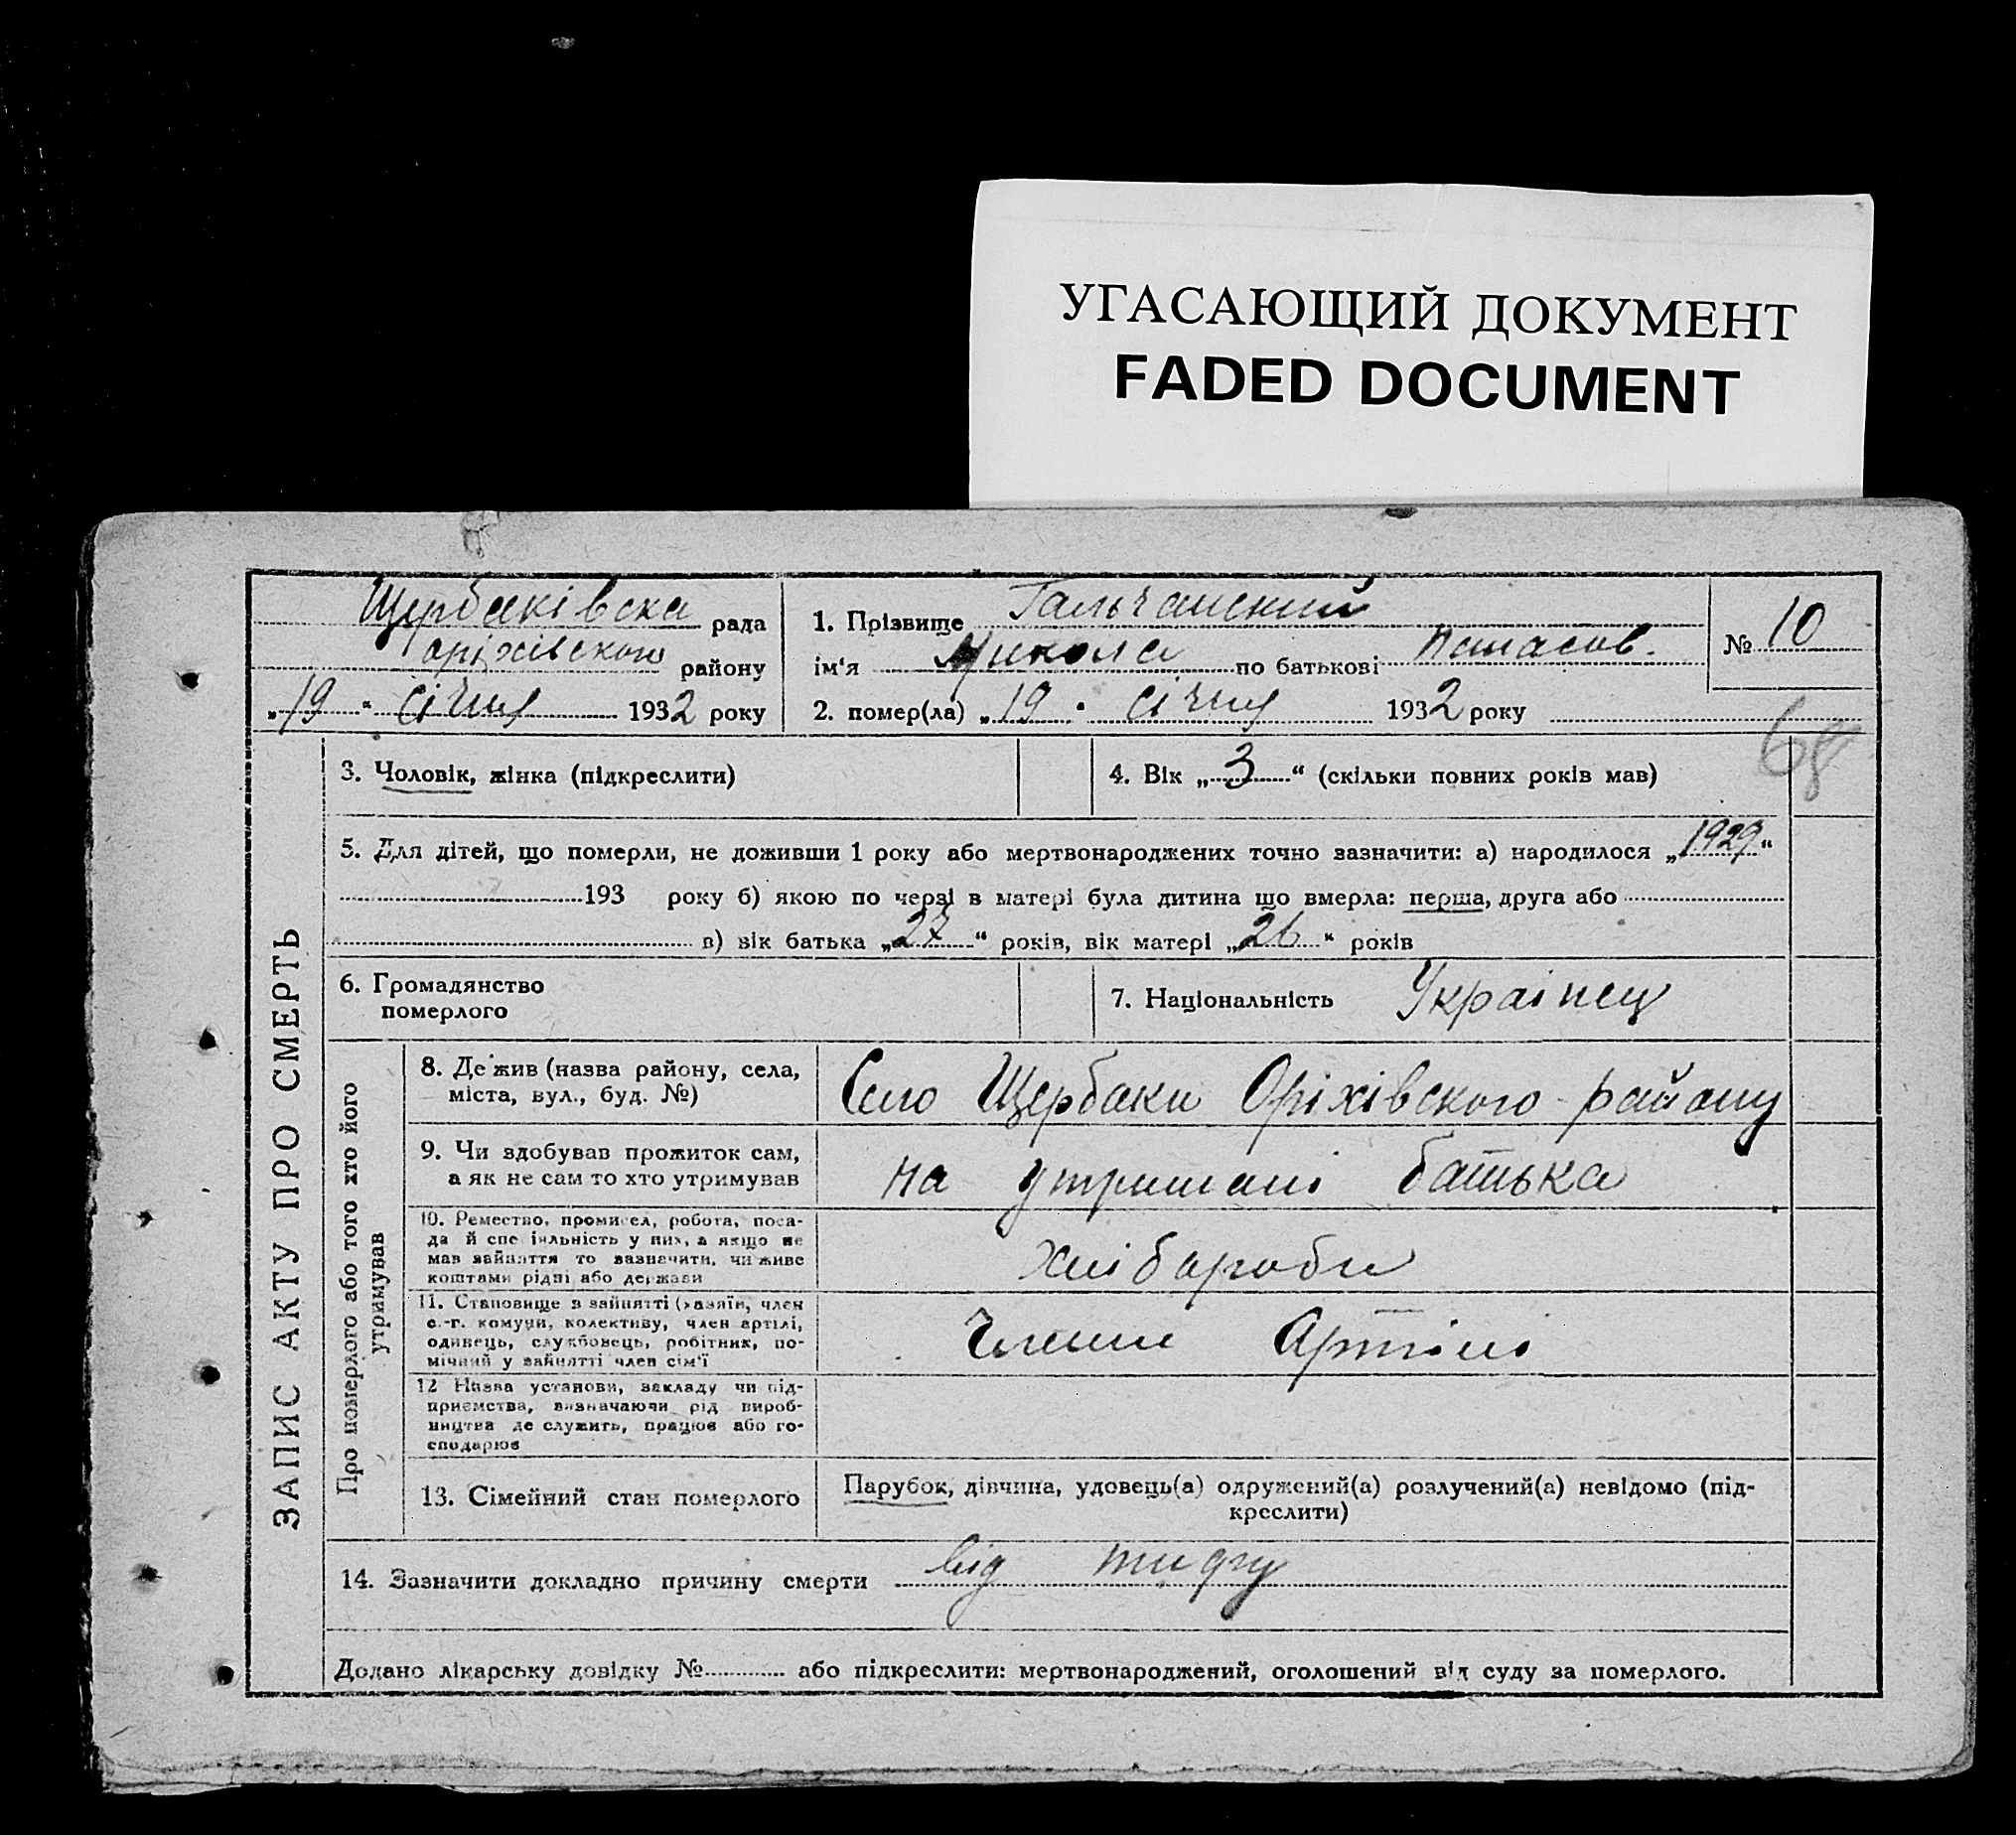 УГАСАЮЩИЙ ДОКУМЕНТ
FADED DOCUMENT
Щербаківска рада
оріхівского району
„19“ січня 1932 року
1. Прізвище Гальчанский
ім‘я Микола по батькові Панасов.
2. помер(ла) „19“ січня 1932 року
№ 10
68
ЗАПИС АКТУ ПРО СМЕРТЬ
3. Чоловік, жінка (підкреслити)
4. Вік „3“ (скільки повних років мав)
5. Для дітей, що померли, не доживши 1 року або мертвонароджених точно зазначити: а) народилося „1929“
193 року б) якою по черзі в матері була дитина що вмерла: перша, друга або
в) вік батька „27“ років, вік матері „26“ років
6. Громадянство
померлого
7. Національність Украінец
Про померлого або того хто його
утримував
8. Де жив (назва району, села,
міста, вул., буд. №)
Село Щербаки Оріхівского району
9. Чи здобував прожиток сам,
а як не сам то хто утримував
на утримані батька
10. Ремество, промисел, робота, поса-
да й спеціяльність у них, а якщо не
мав зайняття то зазначити, чи живе
коштами рідні або держави
хліборобы
11. Становище в зайнятті (хазяїн, член
с.-г. комуни, колективу, член артілі,
одинець, службовець, робітник, по-
мічний у зайнятті член сім‘ї
Члени Артілі
12 Назва установи, закладу чи під-
приємства, визначаючи рід вироб-
ництва де служить, працює або го-
сподарює
13. Сімейний стан померлого
Парубок, дівчина, удовець(а) одружений(а) розлучений(а) невідомо (під-
креслити)
14. Зазначити докладно причину смерти від тифу
Додано лікарську довідку № або підкреслити: мертвонароджений, оголошений від суду за померлого.